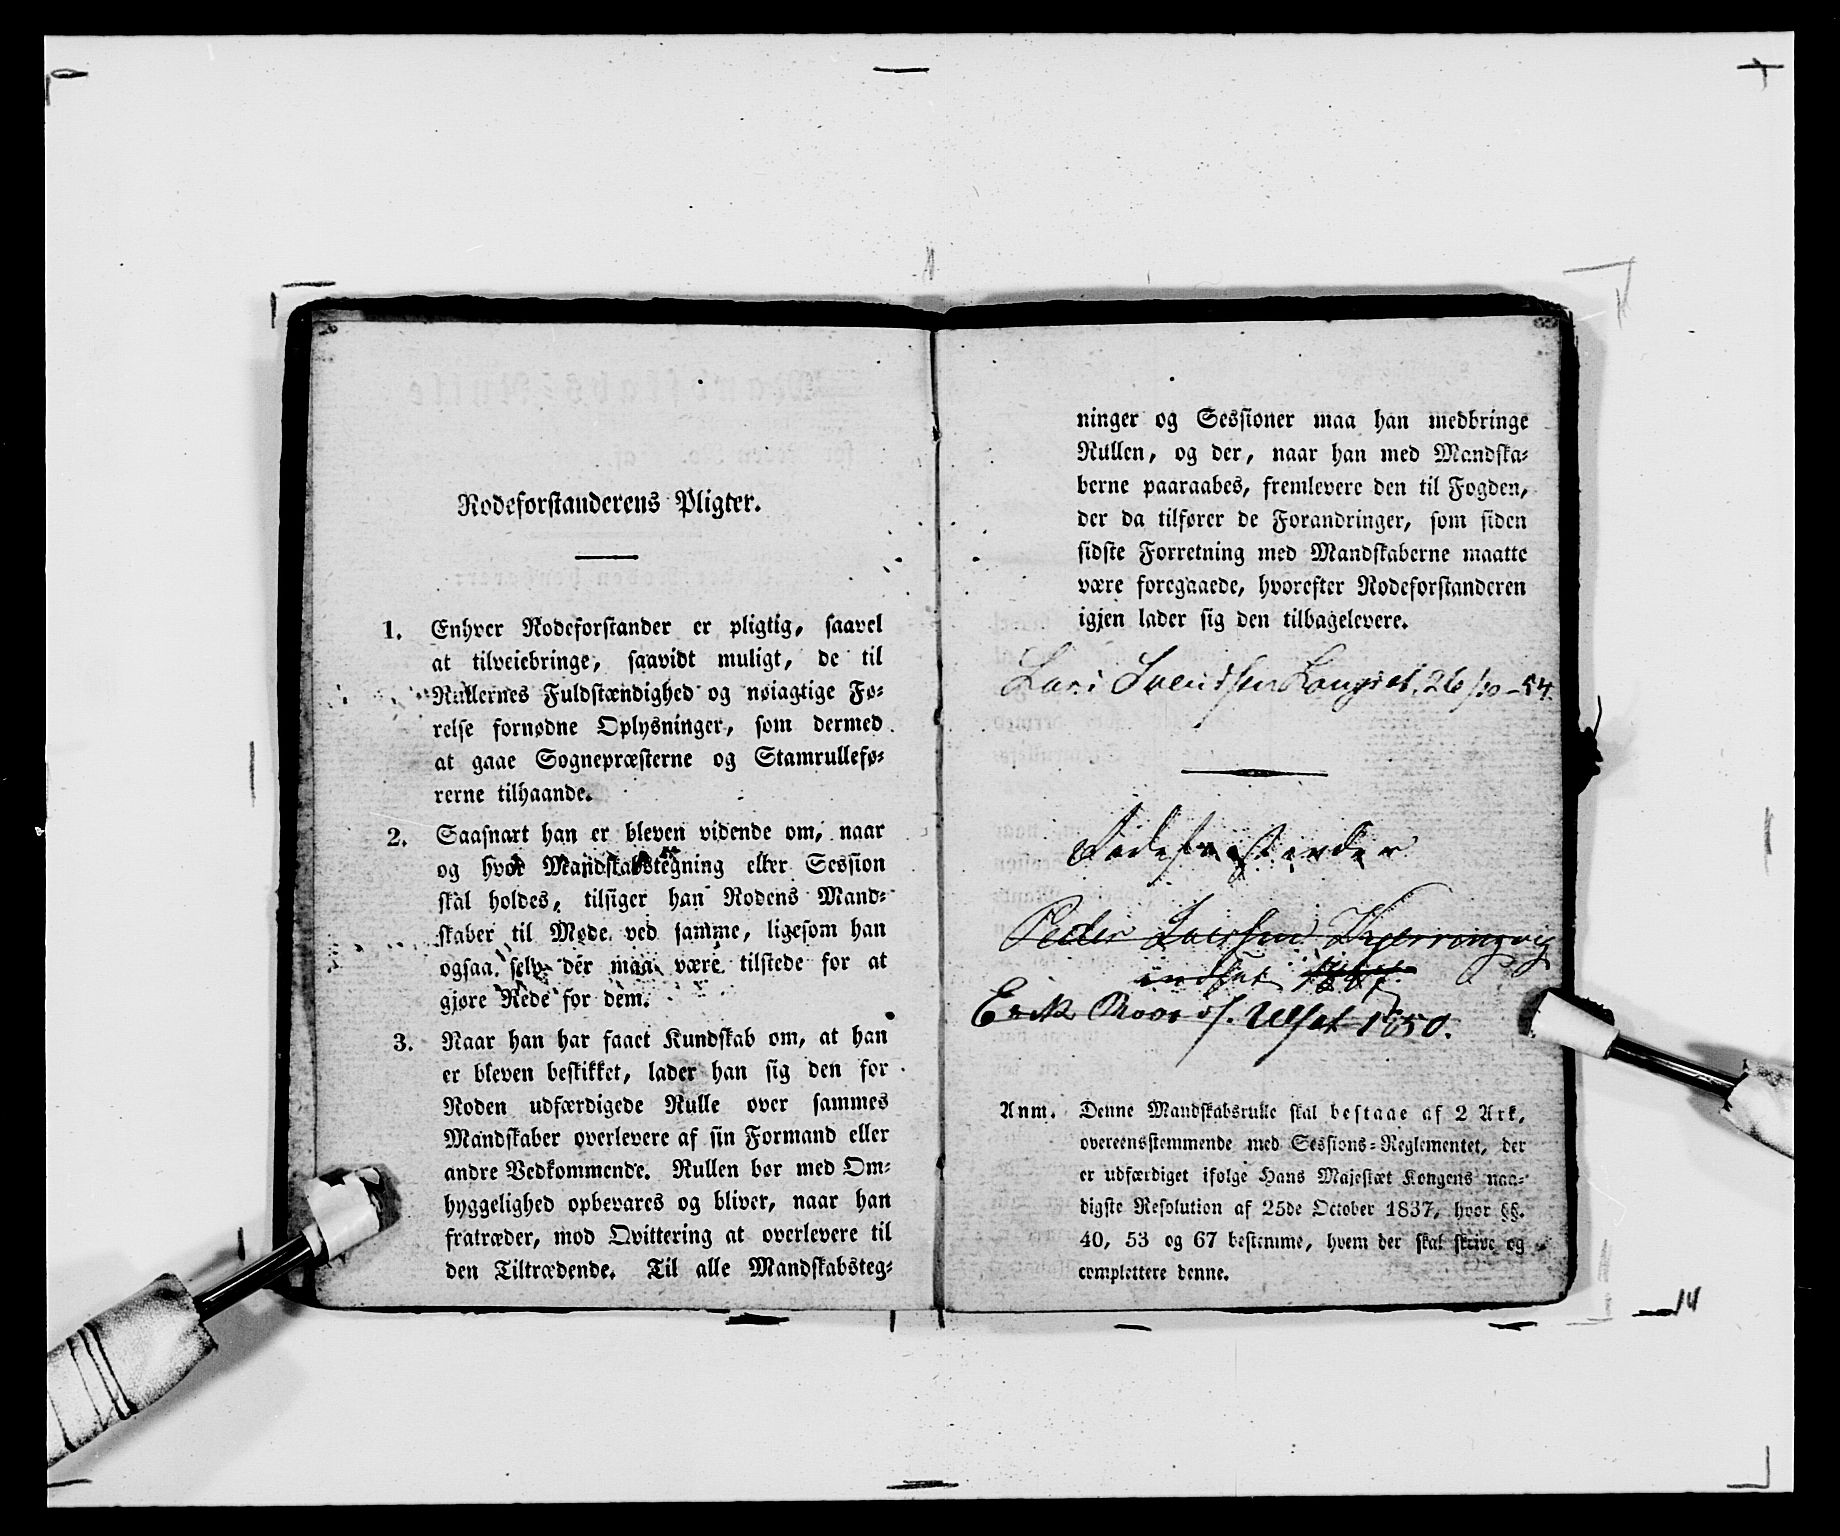 Rodeforstanderens Pligter.
1. Enhver Rodeforstander er pligtig, saavel
at tilveiebringe, saavidt muligt, de til
Rullernes Fuldstændighed og nøiagtige Fø-
relse fornødne Oplysninger, som dermed
at gaae Sognepræsterne og Stamrullefø-
rerne tilhaande.
2. Saasnart han er bleven vidende om, naar
og hvor Mandskabstegning eller Session
skal holdes, tilsiger han Rodens Mand-
skaber til Møde ved samme, ligesom han
ogsaa selv der maa være tilstede for at
gjøre Rede for dem.
3. Naar han har faaet Kundskab om, at han
er bleven beskikket, lader han sig den for
Roden udfærdigede Rulle over sammes
Mandskaber overlevere af sin Formand eller
andre Vedkommende. Rullen bør med Om-
hyggelighed opbevares og bliver, naar han
fratræder, mod Qvittering at overlevere til
den Tiltrædende. Til alle Mandskabsteg-
ninger og Sessioner maa han medbringe
Rullen, og der, naar han med Mandska-
berne paaraabes, fremlevere den til Fogden,
der da tilfører de Forandringer, som siden
sidste Forretning med Mandskaberne maatte
være foregaaede, hvorefter Rodeforstanderen
igjen lader sig den tilbagelevere.
Lars Svendsen 26/10-54.
Rodeforstander
Peder Larsen Kjerringvig
indsat
Erik Ulset 1850.
Anm. Denne Mandskabsrulle skal bestaae af 2 Ark,
overeensstemmende med Sessions-Reglementet, der
er udfærdiget ifølge Hans Majestæt Kongens naa-
digste Resolution af 25de October 1837, hvor §§.
40, 53 og 67 bestemme, hvem der skal skrive og
complettere denne.
14